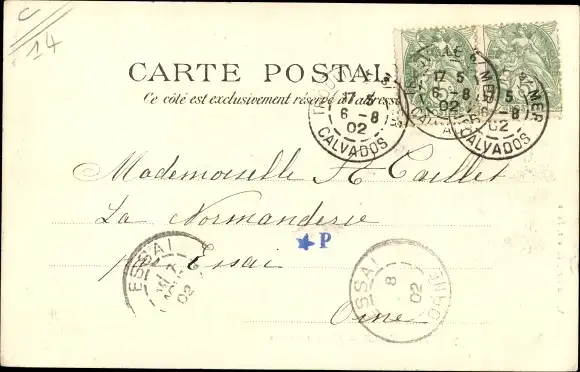 C
14
CARTE POSTALE
Ce côté est exclusivement réservé à l'adresse
17 5
6 - 8
02
CALVADOS
17 5
6 - 8
02
CALVADOS
MER
5
- 8
02
CALVADOS
Mademoiselle H Caillet
La Normanderie
par Essai
Orne
P
ESSAI
02
ESSAI
8
02
ORNE